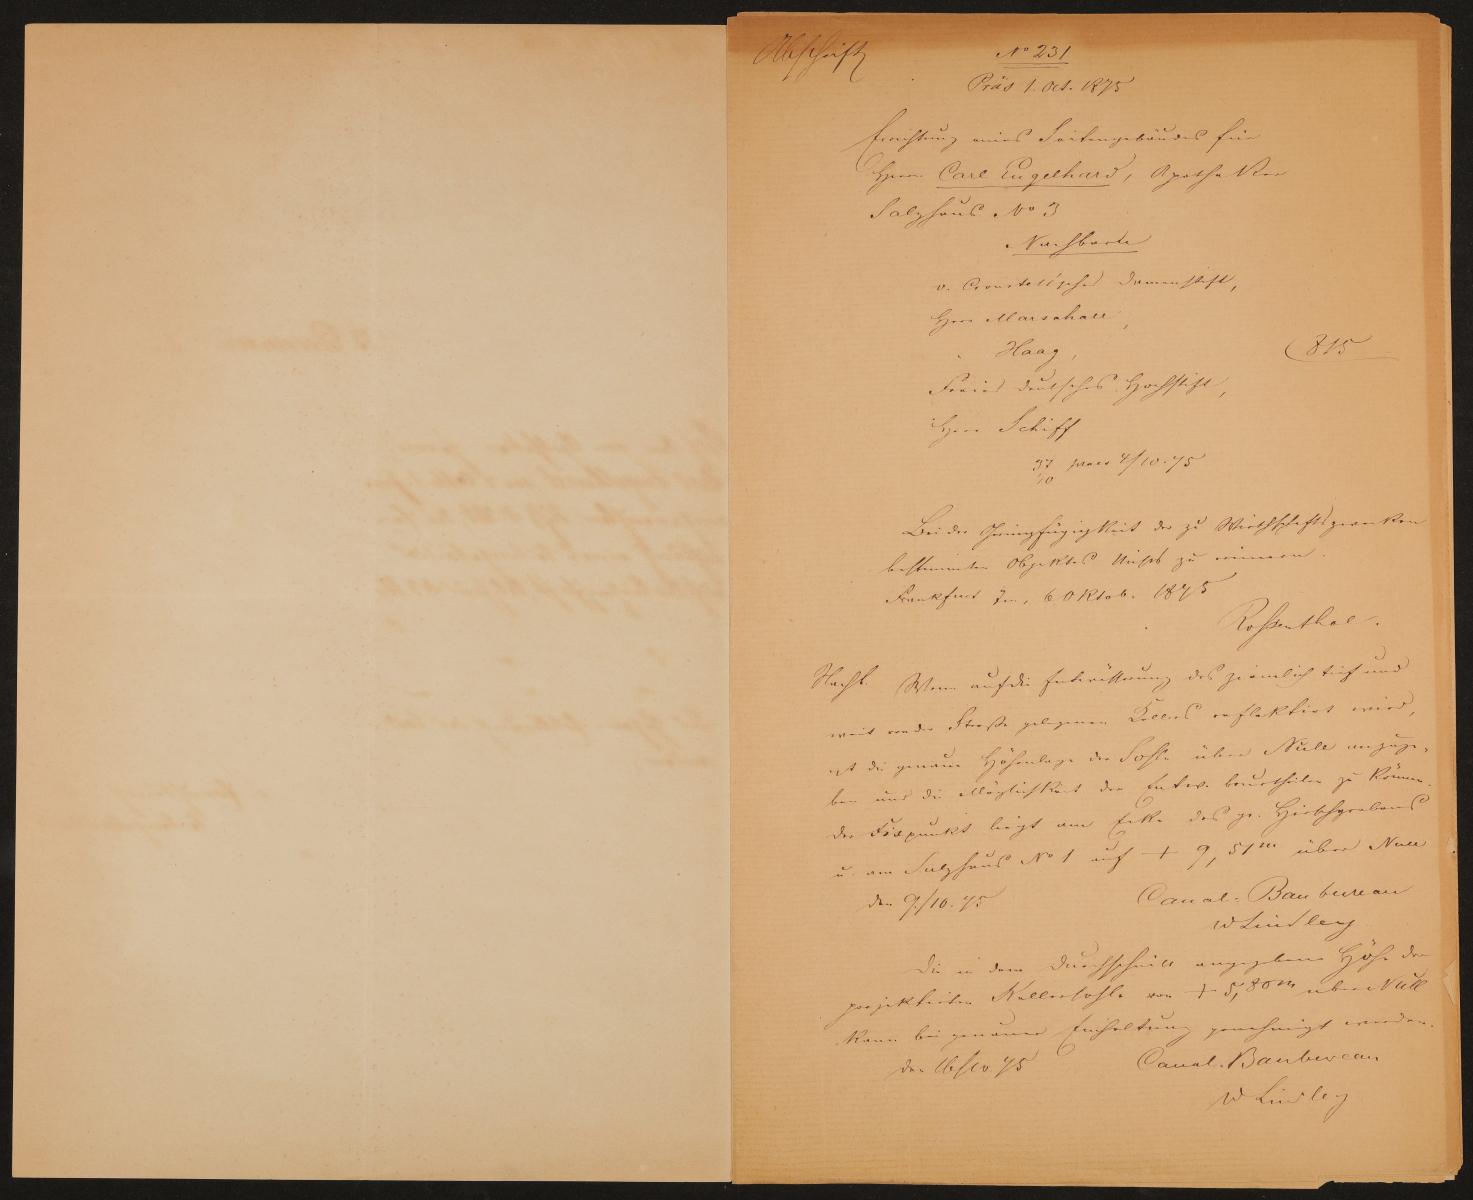 Abschrift
No 231
Präs 1. Oct. 1875
Errichtung eines Seitengebäudes für
Herrn Carl Engelhard, Apotheker
Salzhaus No 3
Nachbarn
v. Cronstett'sches Damenstift,
Herr Marschall,
Haag,
815
Freies deutsches Hochstift,
Herr Schiff
4/10.75
Bei der Geringfügigkeit des zu Wirthschaftszwecken
bestimmten Objektes Nichts zu erinnern.
Frankfurt 6 Oktob. 1875
Roßenthal.
Wenn auf die Entwässerung des ziemlich tief und
weit von der Straße gelegenen Kellers reflektirt wird,
ist die genaue Höhenlage der Sohle über Null anzuge-
ben um die Möglichkeit der Entw. beurtheilen zu können.
Der Fixpunkt liegt am Ecke des gr. Hirschgrabens
u. am Salzhaus No 1 auf + 9,51m über Null
den 9/10.75 Canal-Baubureau
W Lindley
Die in dem Durchschnitt angegebene Höhe der
projektirten Kellersohle von + 5,80m über Null
kann bei genauer Einhaltung genehmigt werden.
den 16/10 75 Canal-Baubureau
W Lindley